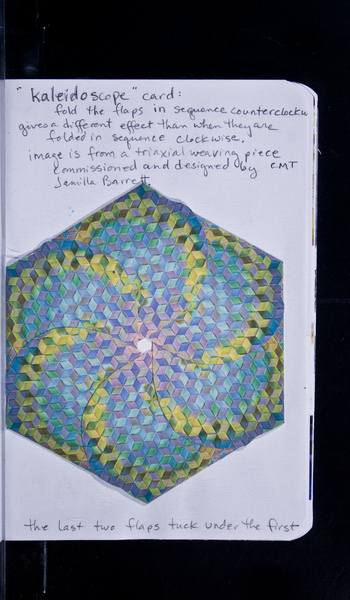 "kaleidoscope" card:
fold the flaps in sequence counterclockw
gives a different effect than when they are
folded in sequence clockwise.
image is from a triaxial weaving piece
commissioned and designed by CMT
Jemilla Barrett
the last two flaps tuck under the first